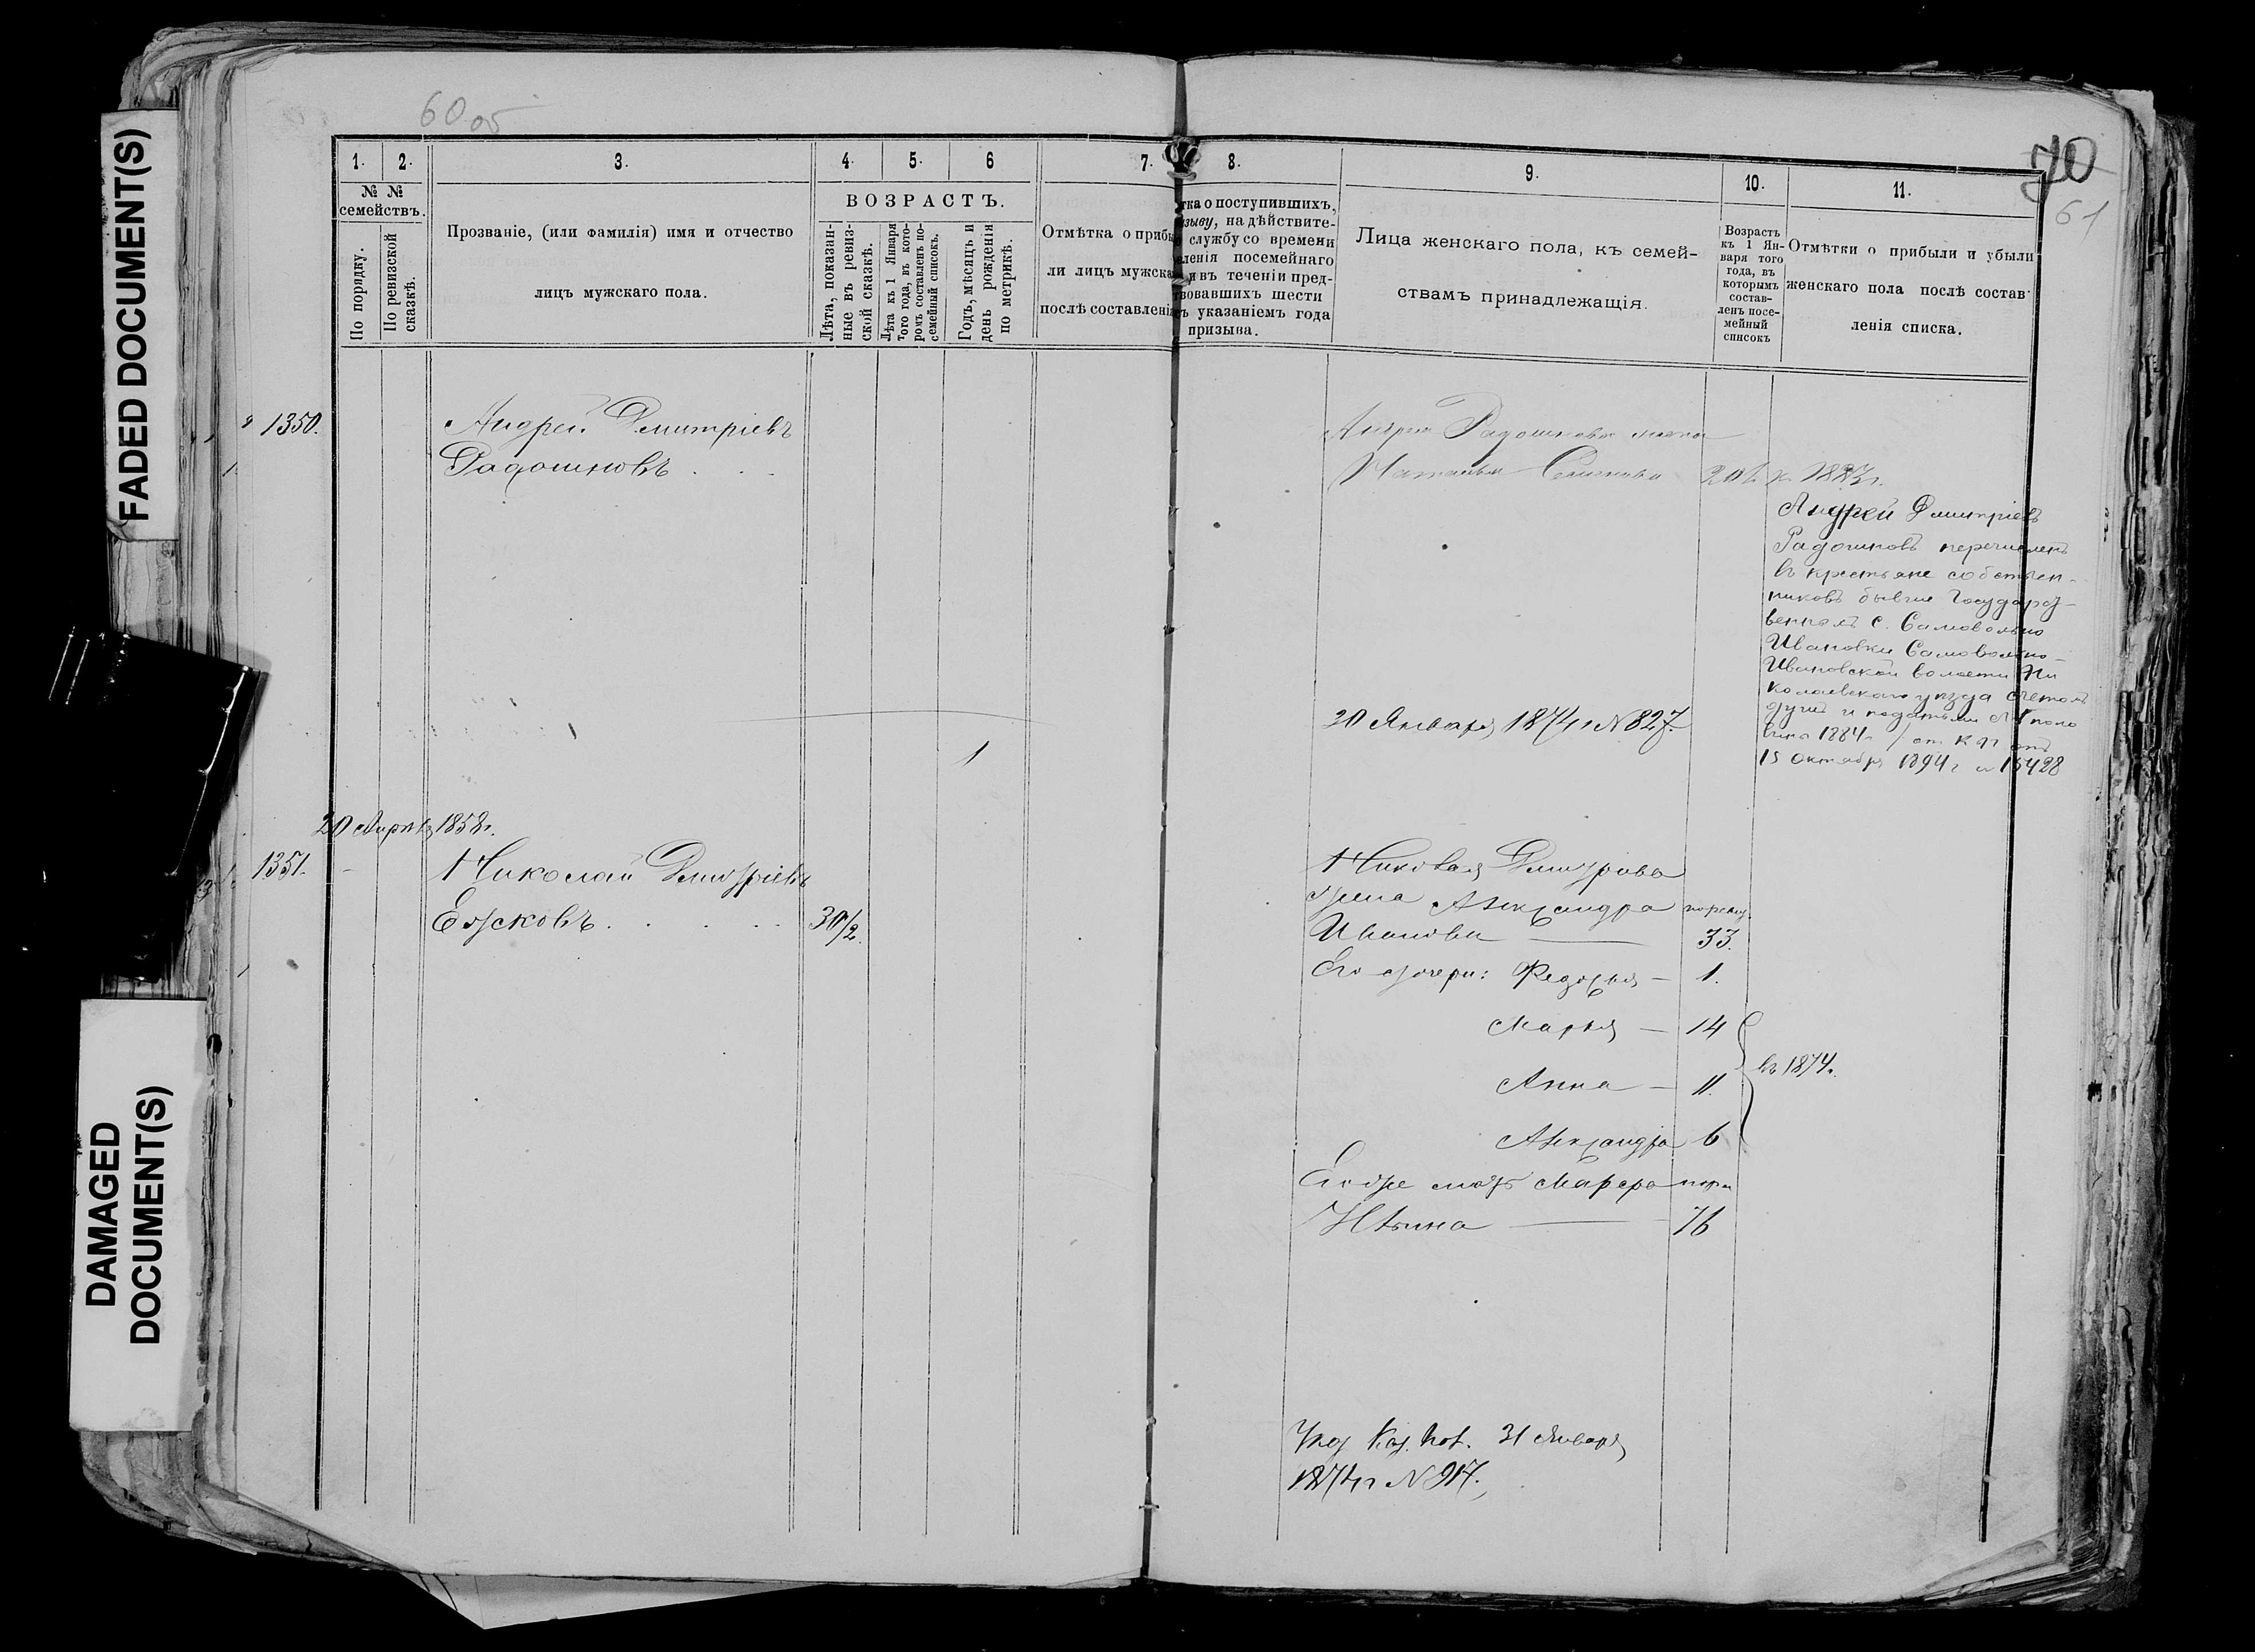 FADED DOCUMENT(S)
DAMAGED
DOCUMENT(S)
60 об
70
61
1. 2. 3. 4. 5. 6 7. 8. 9. 10. 11.
№ №
семействъ.
По порядку.
По ревизской
сказкѣ.
Прозваніе, (или фамилія) имя и отчество
лицъ мужскаго пола.
ВОЗРАСТЪ.
Лѣта, показан-
ные въ ревиз-
ской сказкѣ.
Лѣта къ 1 Января
того года, въ кото-
ромъ составленъ по-
семейный списокъ.
Годъ, мѣсяцъ и
день рожденія
по метрикѣ.
Отмѣтка о прибы
ли лицъ мужска
послѣ составленія
тка о поступившихъ,
зыву, на дѣйствите-
службу со времени
вленія посемейнаго
и въ теченіи пред-
твовавшихъ шести
съ указаніемъ года
призыва.
Лица женскаго пола, къ семей-
ствамъ принадлежащія.
Возрастъ
къ 1 Ян-
варя того
года, въ
которымъ
состав-
ленъ посе-
мейный
списокъ
Отмѣтки о прибыли и убыли
женскаго пола послѣ состав-
ленія списка.
1350.
Андрей Дмитріевъ
Радошновъ
Андрея Радошнова жена
Наталья Семенова 20 л. къ 1883 г.
Андрей Дмитріевъ
Радошновъ перечисленъ
въ крестьяне собствен-
никовъ бывше Государст-
венныхъ с. Самовольно
Ивановки Самовольно-
Ивановской волости Ни
колаевскаго уѣзда счетомъ
души и податьми поло
вины 1884 г. от К П отъ
15 Октября 1894 г № 15428
20 Января 1874 г № 827.
1
20 Апрѣля 1858 г.
1351.
Николай Дмитріевъ
Ежсковъ 30/2.
Николая Дмитріева
жена Александра по ревиз.
Иванова 33.
Его дочери: Федосья — 1.
Марья — 14
Анна — 11.
въ 1874 г.
Александра 6
Его же мать Марфа по рев
Ильина 76
Указ Каз. Пол. 31 Января
1874 г № 917.